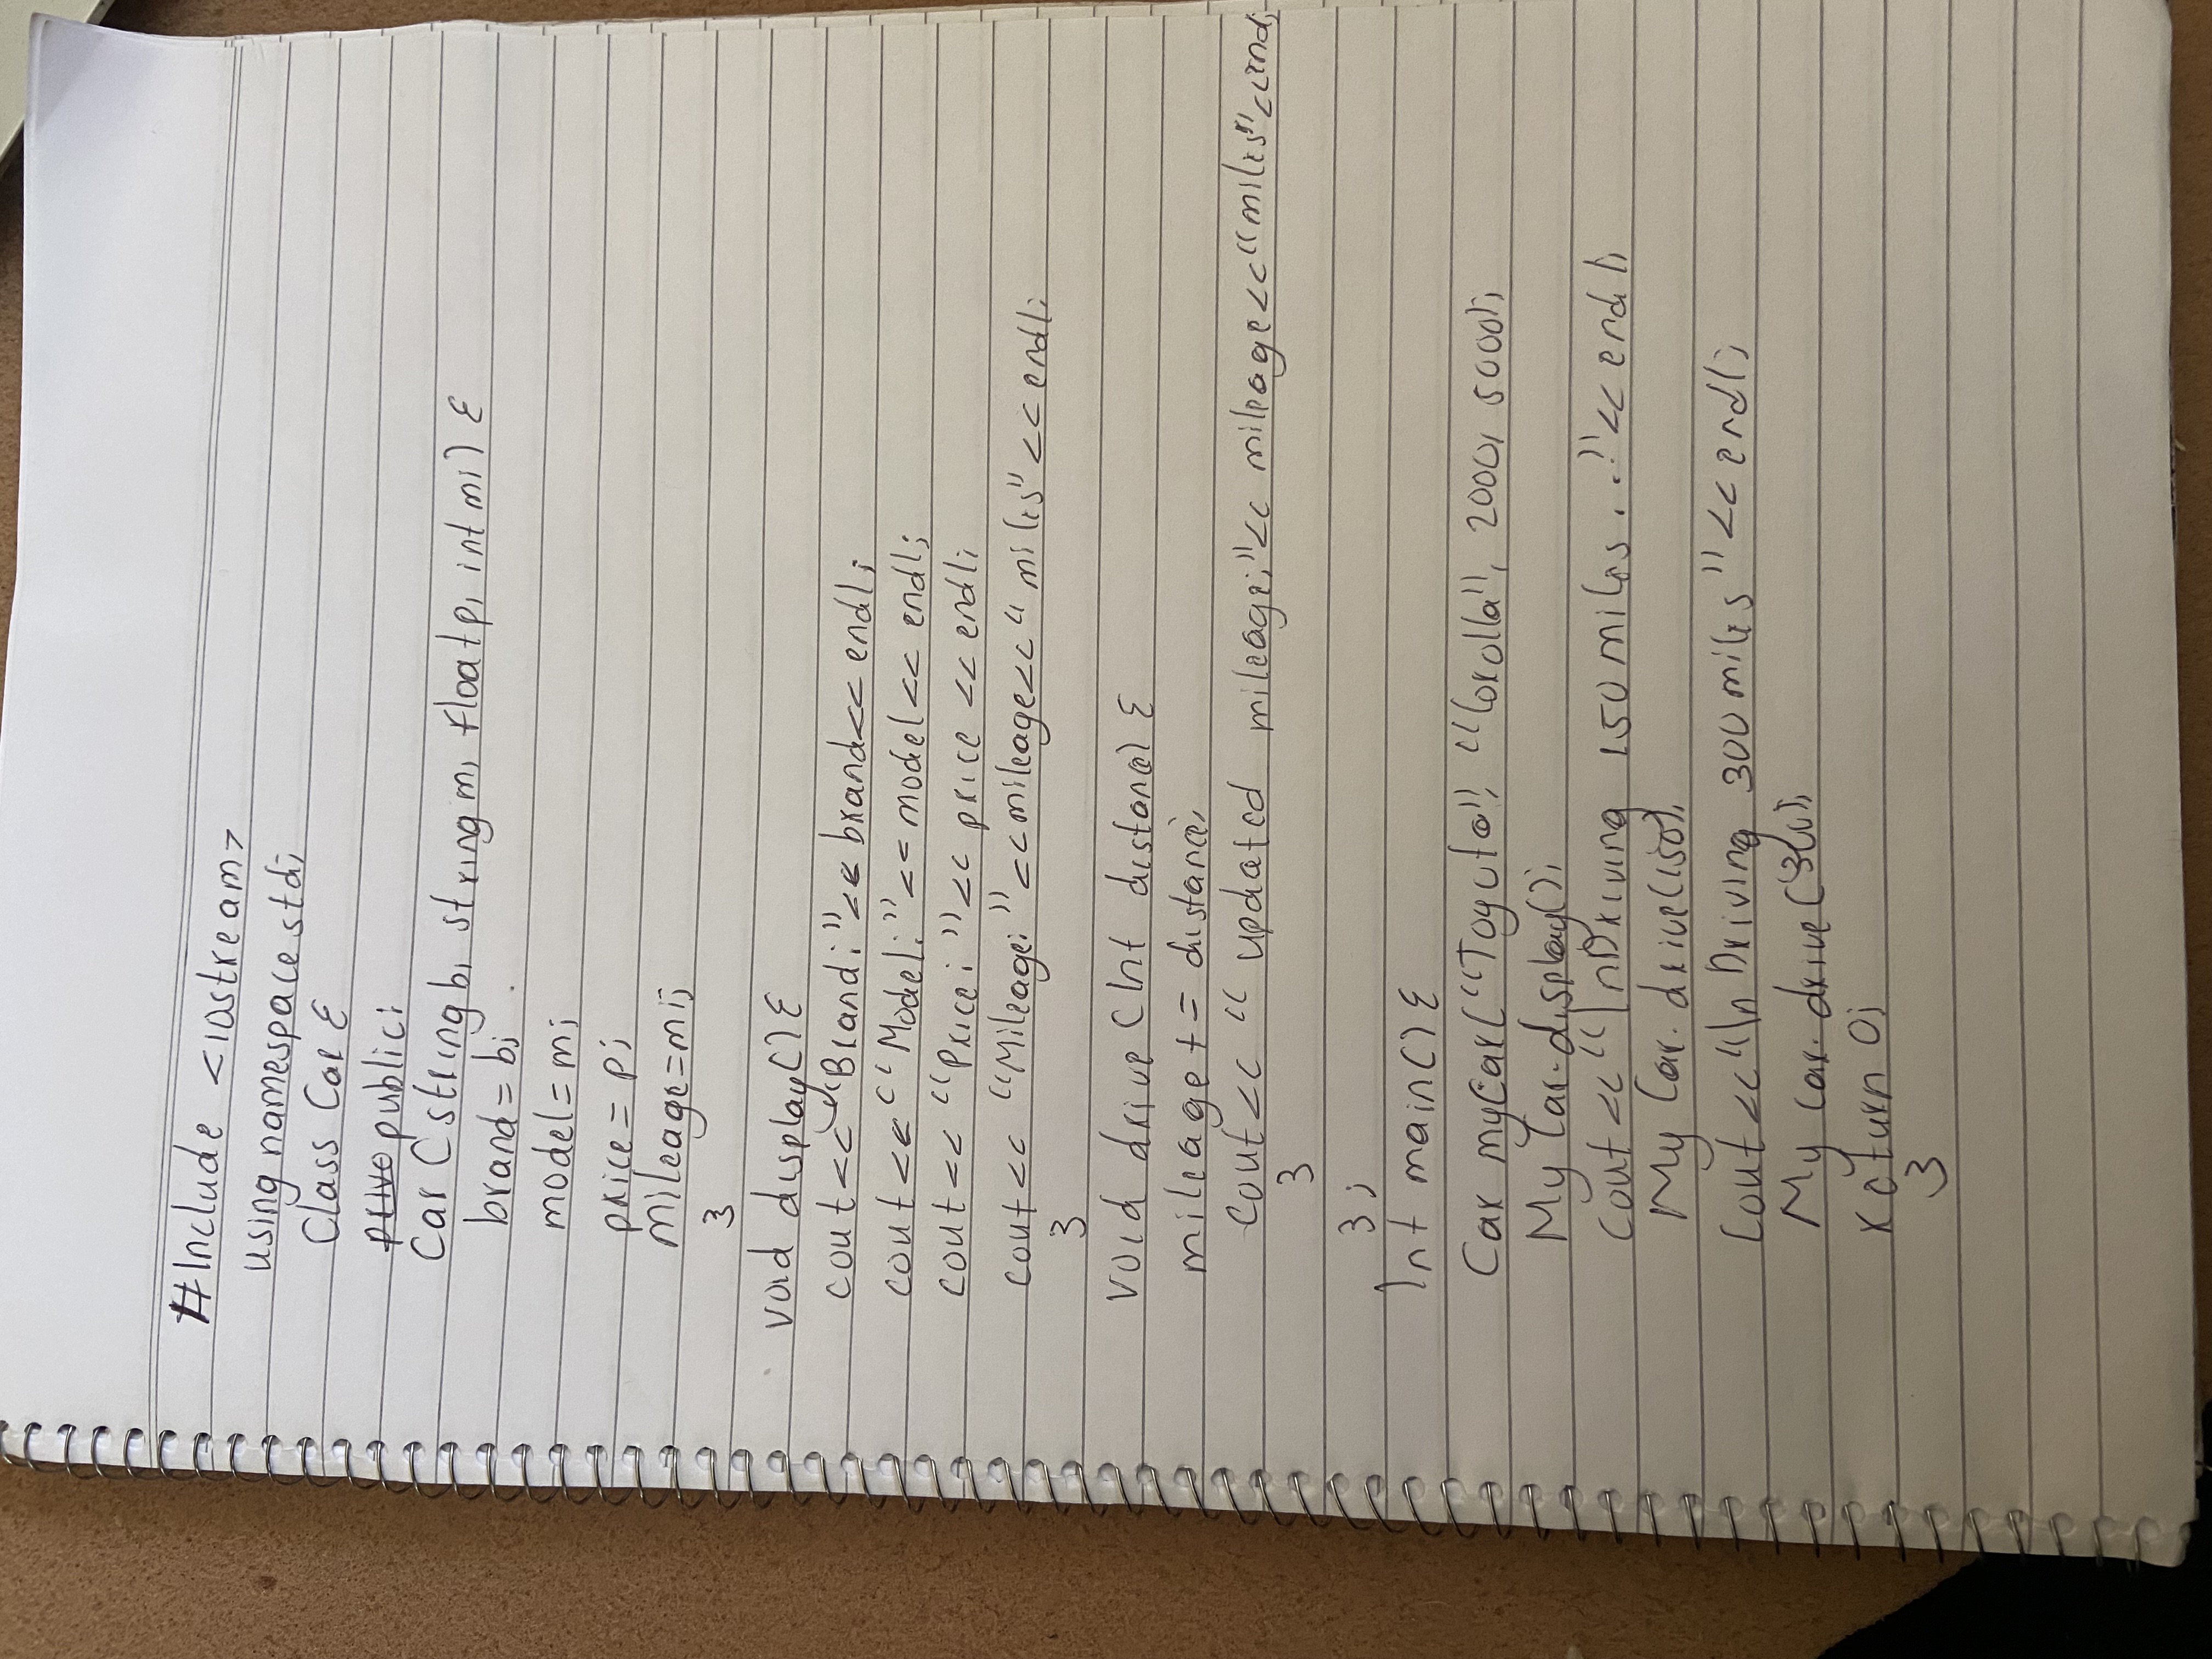 #Include <iostream>
using namespace std;
Class Car {
privo public:
Car (string b, string m, float p, int mi) {
brand = b;
model = m;
price = p;
mileage = mi;
}
void display() {
cout << "Brand: " << brand << endl;
cout << "Model: " << model << endl;
cout << "Price: " << price << endl;
cout << "Mileage: " << mileage << " miles" << endl;
}
void drive (Int distance) {
mileage += distance;
cout << " updated mileage: " << mileage << "miles" << end;
}
};
Int main() {
Car myCar("Toyota", "Corolla", 2000, 5000);
My Car.display();
cout << "\nDriving 150 miles..." << endl;
My Car.drive(150);
Cout << "\n Driving 300 miles" << endl;
My Car.drive(300);
return 0;
}